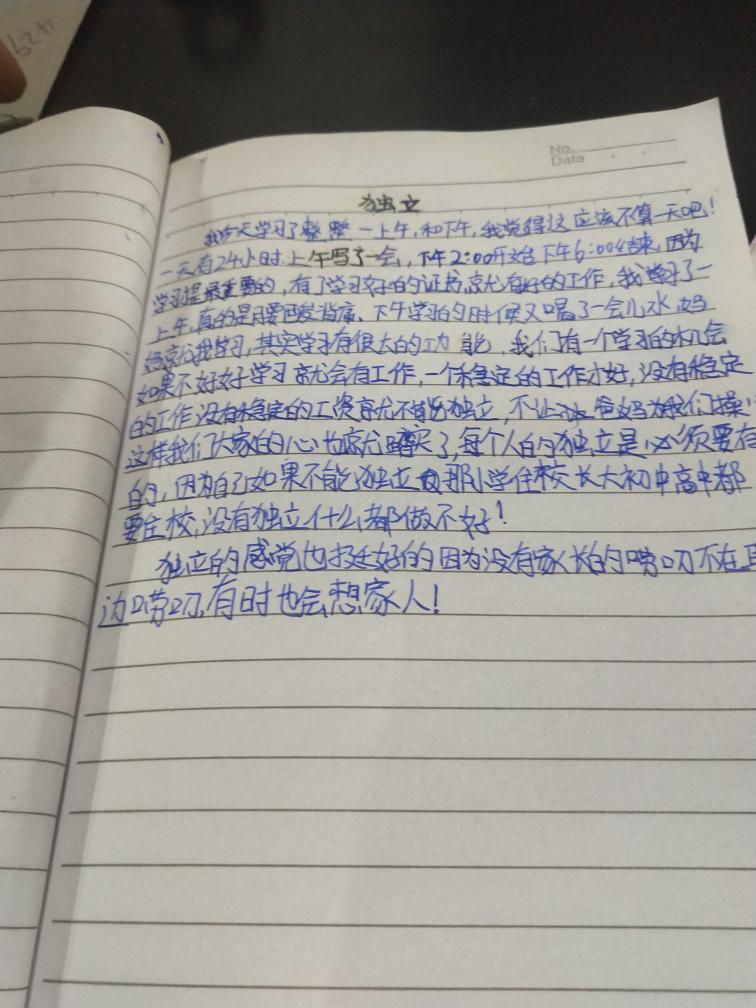 No.
Date
独立
我今天学习了整整一上午,和下午,我觉得这应该不算一天吧!
一天有24小时.上午写了一会,下午2:00开始下午6:00结束,因为
学习是最重要的,有了学习好的证书,就有好的工作,我学习了一
上午,真的是腰酸背痛、下午学习的时候又喝了一会儿水,妈
妈说我学习,其实学习有很大的功能,我们有一个学习的机会
如果不好好学习就会有工作,一个稳定的工作才好,没有稳定
的工作,没有稳定的工资就不能独立,不让爸妈为我们操
这样我们大家的心也就了,每个人的独立是必须要存
的,因为自己如果不能独立那小学住校长大初中高中都
要住校,没有独立什么都做不好!
独立的感觉也挺好的因为没有家长的唠叨不在
边唠叨,有时也会想家人!